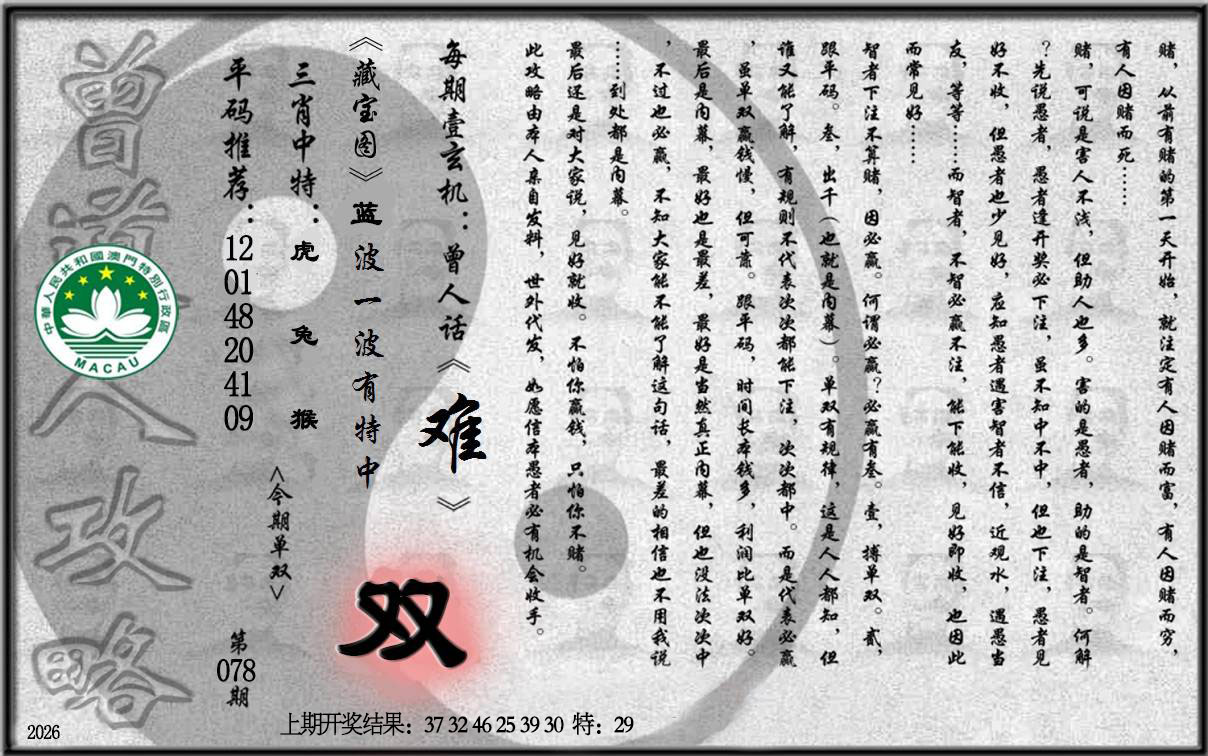 赌，从前有赌的第一天开始，就注定有人因赌而富，有人因赌而穷，
有人因赌而死……
赌，可说是害人不浅，但助人也多。害的是愚者，助的是智者。何解
？先说愚者，愚者逢开奖必下注，虽不知中不中，但也下注，愚者见
好不收，但愚者也少见好，应知愚者遇害智者不信，近观水，遇愚当
友，等等……而智者，不智必赢不注，能下能收，见好即收，也因此
而常见好……
智者下注不算赌，因必赢。何谓必赢？必赢有叁。壹，搏单双。贰，
跟平码。叁，出千（也就是内幕）。单双有规律，这是人人都知，但
谁又能了解，有规则不代表次次都能下注，次次都中。而是代表必赢
，虽单双赢钱慢，但可靠。跟平码，时间长本钱多，利润比单双好。
最后是内幕，最好也是最差，最好是当然真正内幕，但也没法次次中
，不过也必赢，不知大家能不能了解这句话，最差的相信也不用我说
……到处都是内幕。
最后还是对大家说，见好就收。不怕你赢钱，只怕你不赌。
此攻略由本人亲自发料，世外代发，如愿信本愚者必有机会收手。
每期壹玄机：曾人话《难》
《藏宝图》蓝波一波有特中
双
三肖中特：虎 兔 猴
<今期单双>
平码推荐：12 01 48 20 41 09
第078期
曾道人攻略
中華人民共和國澳門特別行政區
MACAU
上期开奖结果：37 32 46 25 39 30 特：29
2026